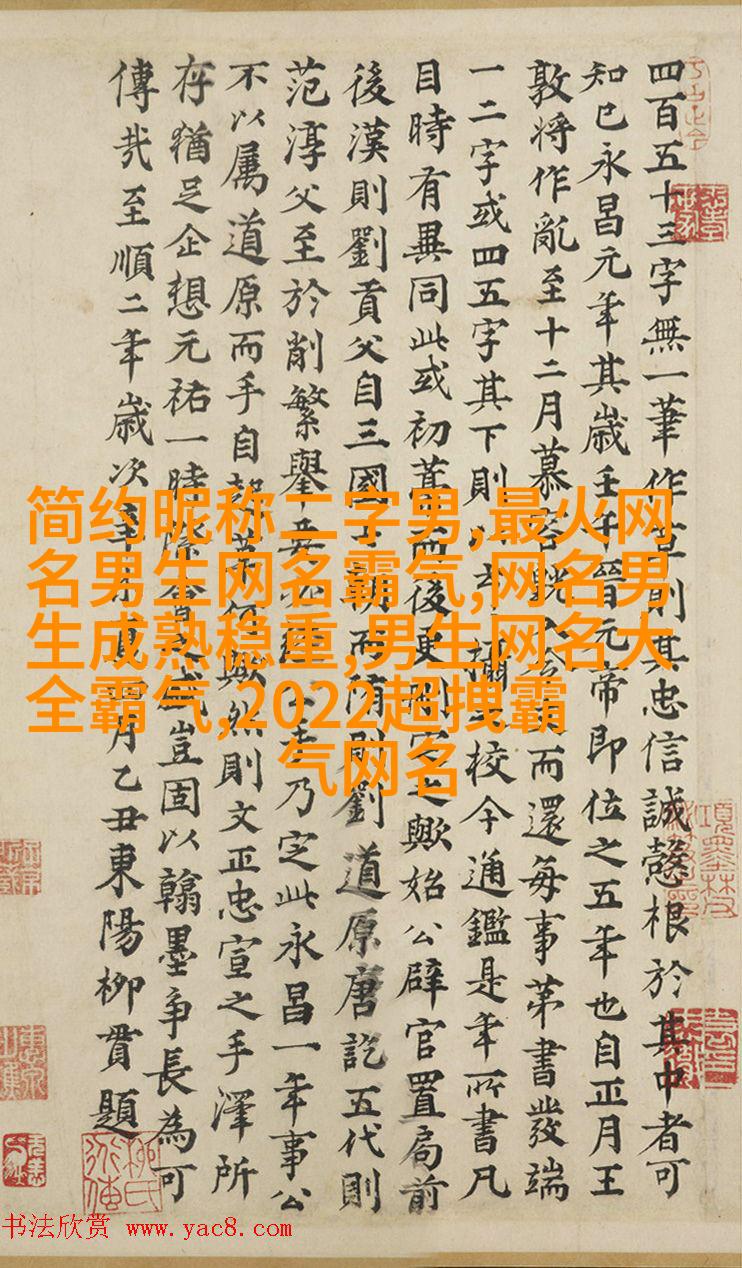 四百五十三字無一筆作草則其忠信誠慤根於其中者可
知已永昌元年其歲壬午晉元帝即位之五年也自正月王
敦將作亂至十二月慕容而還每事第書發端
一二字或四五字其下則以校今通鑑是年所書凡
目時有異同此或初藁而後更刪定之歟始公辟官置局前
後漢則劉貢父自三國朝而隋則劉道原唐訖五代則
范淳父至於削繁舉要必經公手乃定此永昌一年事公
不以屬道原而手自起草何歟然則文正忠宣之手澤所
存猶足企想元祐一時際會之盛豈固以翰墨爭長為可
傳哉至順二年歲次辛未月乙丑東陽柳貫題
简约昵称二字男,最火网
名男生网名霸气,网名男
生成熟稳重,男生网名大
全霸气,2022超拽霸
气网名
书法欣赏 www.yac8.com